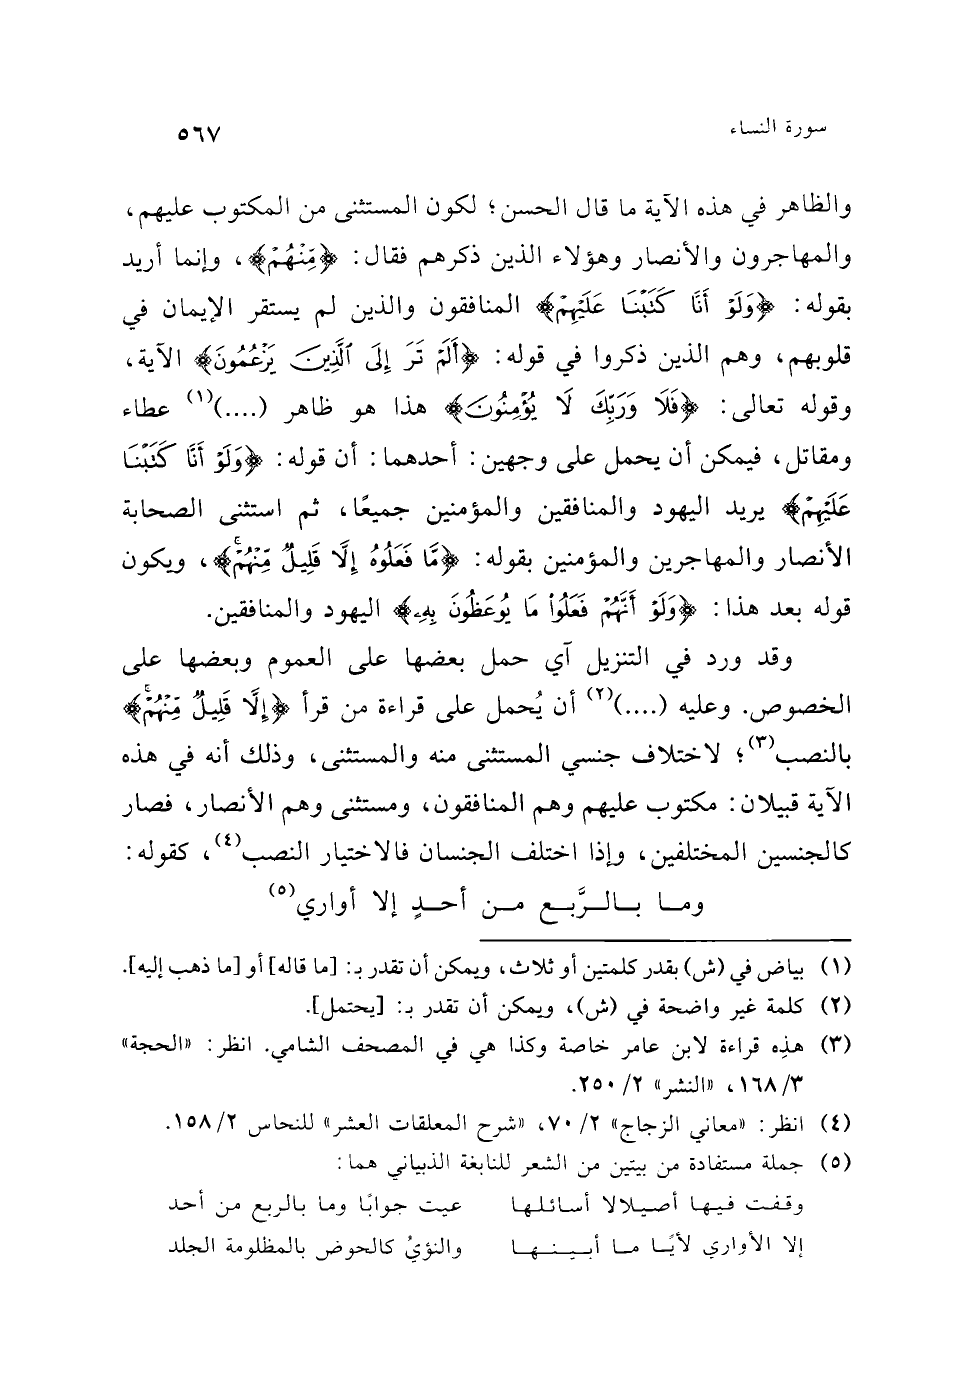 سورة النساء ٥٦٧
والظاهر في هذه الآية ما قال الحسن؛ لكون المستثنى من المكتوب عليهم،
والمهاجرون والأنصار وهؤلاء الذين ذكرهم فقال: ﴿مِّنْهُمْ﴾، وإنما أريد
بقوله: ﴿وَلَوْ أَنَّا كَتَبْنَا عَلَيْهِمْ﴾ المنافقون والذين لم يستقر الإيمان في
قلوبهم، وهم الذين ذكروا في قوله: ﴿أَلَمْ تَرَ إِلَى الَّذِينَ يَزْعُمُونَ﴾ الآية،
وقوله تعالى: ﴿فَلَا وَرَبِّكَ لَا يُؤْمِنُونَ﴾ هذا هو ظاهر (....)(١) عطاء
ومقاتل، فيمكن أن يحمل على وجهين: أحدهما: أن قوله: ﴿وَلَوْ أَنَّا كَتَبْنَا
عَلَيْهِمْ﴾ يريد اليهود والمنافقين والمؤمنين جميعًا، ثم استثنى الصحابة
الأنصار والمهاجرين والمؤمنين بقوله: ﴿مَّا فَعَلُوهُ إِلَّا قَلِيلٌ مِّنْهُمْۚ﴾، ويكون
قوله بعد هذا: ﴿وَلَوْ أَنَّهُمْ فَعَلُوا۟ مَا يُوعَظُونَ بِهِۦ﴾ اليهود والمنافقين.
وقد ورد في التنزيل آي حمل بعضها على العموم وبعضها على
الخصوص. وعليه (....)(٢) أن يُحمل على قراءة من قرأ ﴿إِلَّا قَلِيلٌ مِّنْهُمْۚ﴾
بالنصب(٣)؛ لاختلاف جنسي المستثنى منه والمستثنى، وذلك أنه في هذه
الآية قبيلان: مكتوب عليهم وهم المنافقون، ومستثنى وهم الأنصار، فصار
كالجنسين المختلفين، وإذا اختلف الجنسان فالاختيار النصب(٤)، كقوله:
وما بالرَّبع من أحدٍ إلا أواري(٥)
(١) بياض في (ش) بقدر كلمتين أو ثلاث، ويمكن أن تقدر بـ: [ما قاله] أو [ما ذهب إليه].
(٢) كلمة غير واضحة في (ش)، ويمكن أن تقدر بـ: [يحتمل].
(٣) هذِه قراءة لابن عامر خاصة وكذا هي في المصحف الشامي. انظر: «الحجة»
٣/ ١٦٨، «النشر» ٢/ ٢٥٠.
(٤) انظر: «معاني الزجاج» ٢/ ٧٠، «شرح المعلقات العشر» للنحاس ٢/ ١٥٨.
(٥) جملة مستفادة من بيتين من الشعر للنابغة الذبياني هما:
وقفت فيها أصيلالا أسائلها عيت جوابًا وما بالربع من أحد
إلا الأواري لأيًا ما أبينها والنؤيُ كالحوض بالمظلومة الجلد